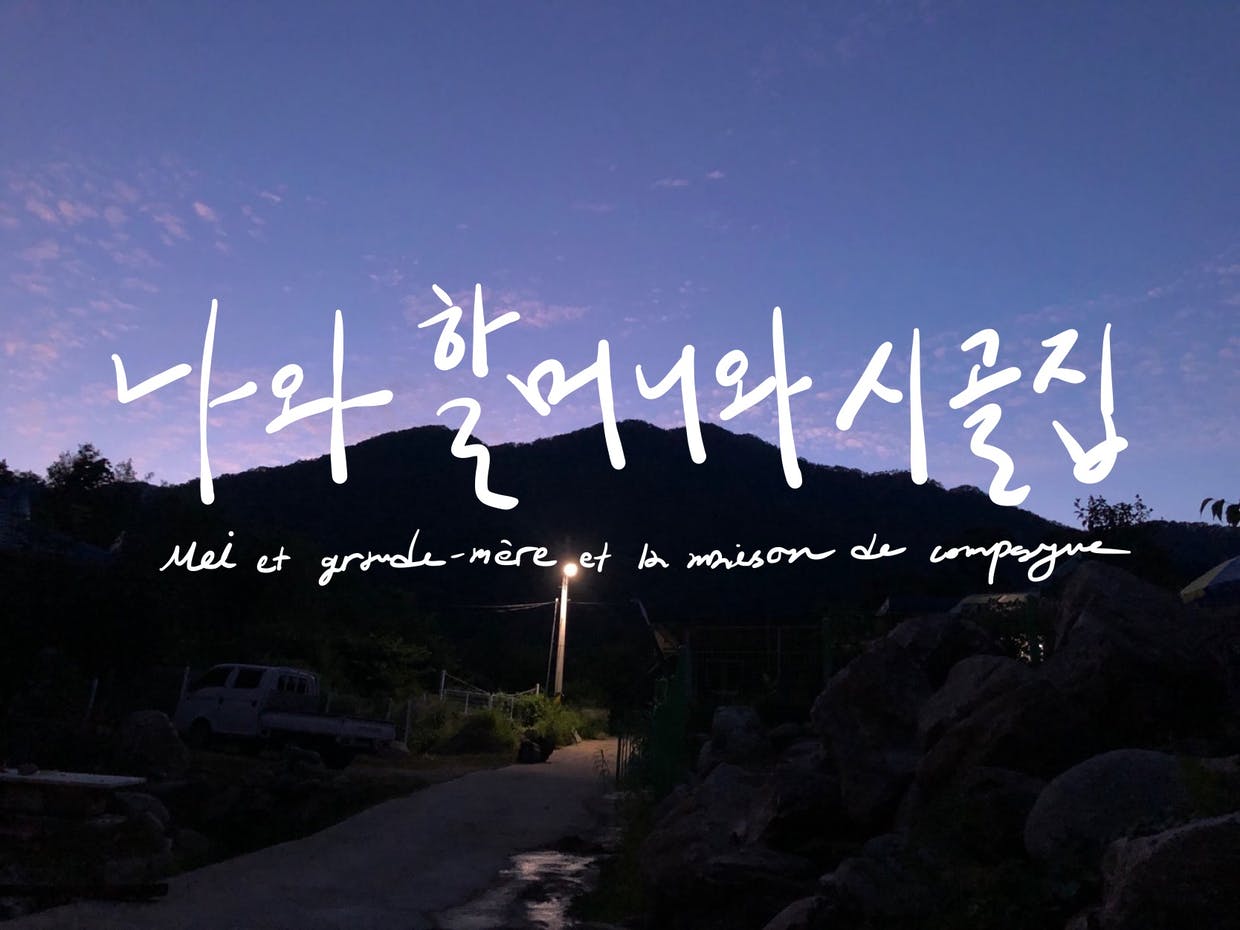 나와 할머니와 시골집
Mei et grande-mère et la maison de compagne